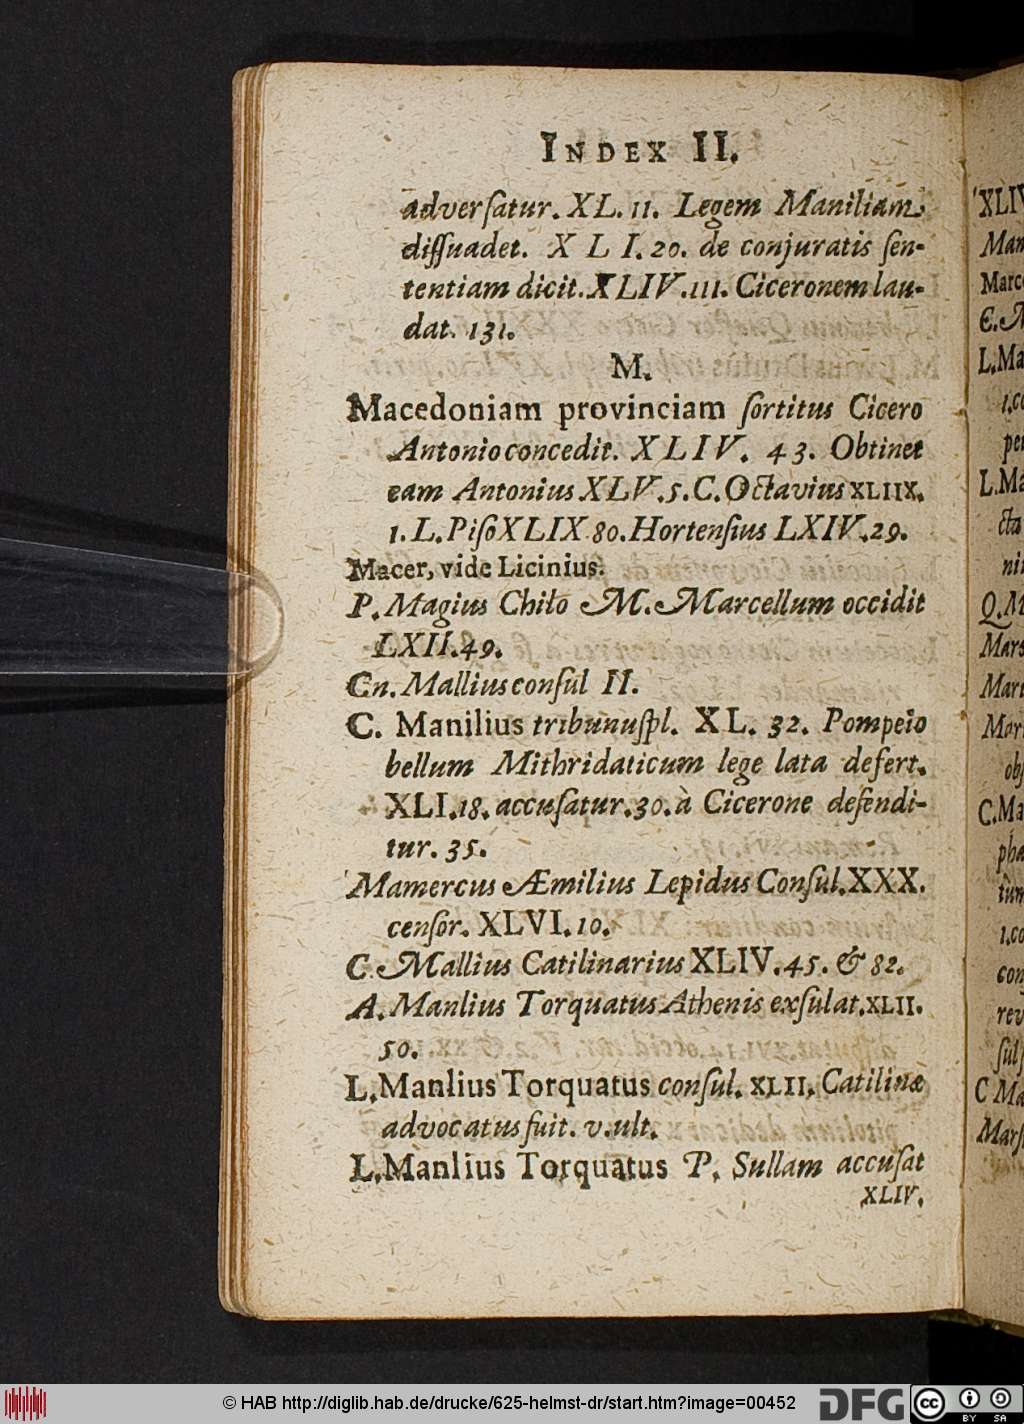 INDEX II.
adverſatur. XL. 11. Legem Maniliam
diſſuadet. X L I. 20. de conjuratis ſen-
tentiam dicit. XLIV. 111. Ciceronem lau-
dat. 131.
M.
Macedoniam provinciam ſortitus Cicero
Antonio concedit. XLIV. 43. Obtinet
eam Antonius XLV. 5. C. Octavius XLIIX.
1. L. Piſo XLIX 80. Hortenſius LXIV. 29.
Macer, vide Licinius.
P. Magius Chilo M. Marcellum occidit
LXII. 49.
Cn. Mallius conſul II.
C. Manilius tribunuſpl. XL. 32. Pompeio
bellum Mithridaticum lege lata defert.
XLI. 18. accuſatur. 30. à Cicerone defendi-
tur. 35.
Mamercus Æmilius Lepidus Conſul. XXX.
cenſor. XLVI. 10.
C. Mallius Catilinarius XLIV. 45. & 82.
A. Manlius Torquatus Athenis exſulat. XLII.
50.
L. Manlius Torquatus conſul. XLII. Catilinæ
advocatus fuit. v. ult.
L. Manlius Torquatus P. Sullam accuſat
XLIV.
XLIV
Man
Marc
L. Ma
1. co
per
L. Ma
cta
Q. M
Mars
Mari
Mari
obj
C. Ma
pha
tùm
1. co
con
rev
ſul ſ
C Ma
Marſ
© HAB http://diglib.hab.de/drucke/625-helmst-dr/start.htm?image=00452
DFG
cc
BY SA